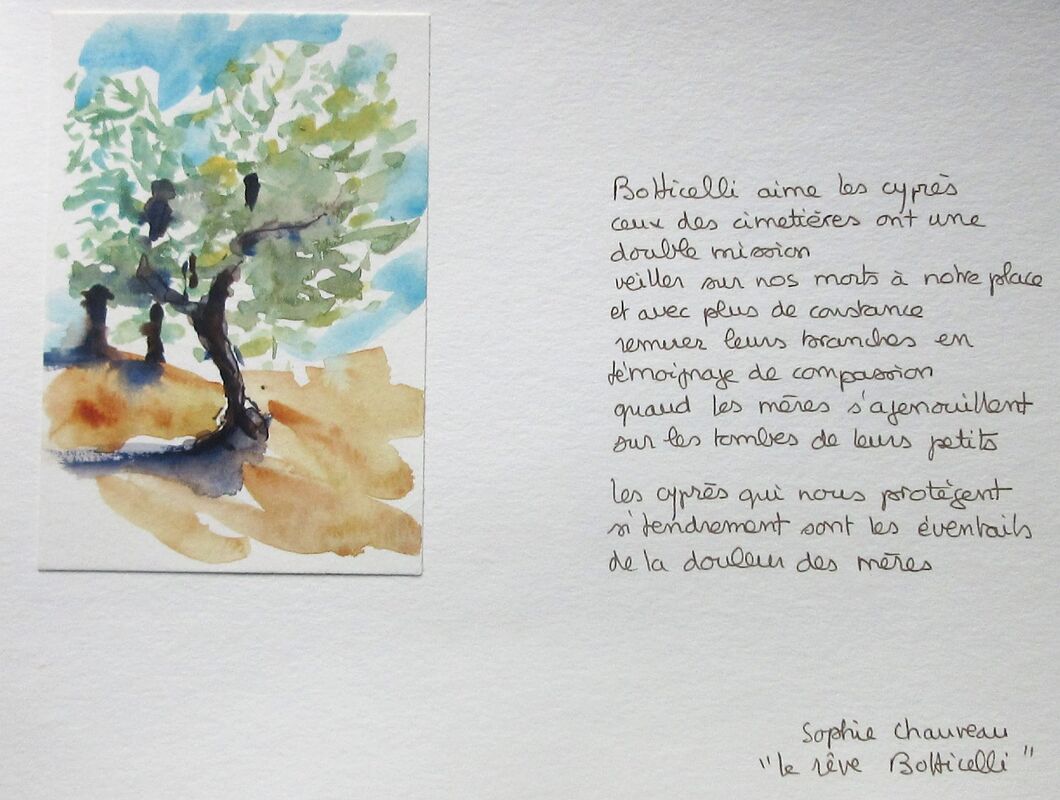 Botticelli aime les cyprès
ceux des cimetières ont une
double mission
veiller sur nos morts à notre place
et avec plus de constance
remuer leurs branches en
témoignage de compassion
quand les mères s'agenouillent
sur les tombes de leurs petits
les cyprès qui nous protègent
si tendrement sont les éventails
de la douleur des mères
Sophie Chauveau
"le rêve Botticelli"